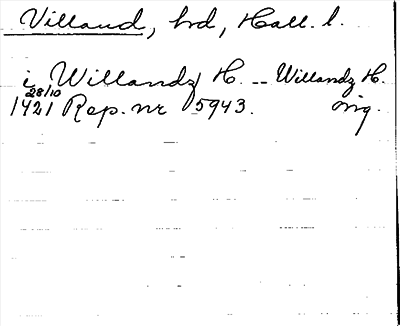 Villand, hd, Hall. l.
i Willandz H. -- Willandz H.
28/10
1421 Rep. nr 5943. orig.